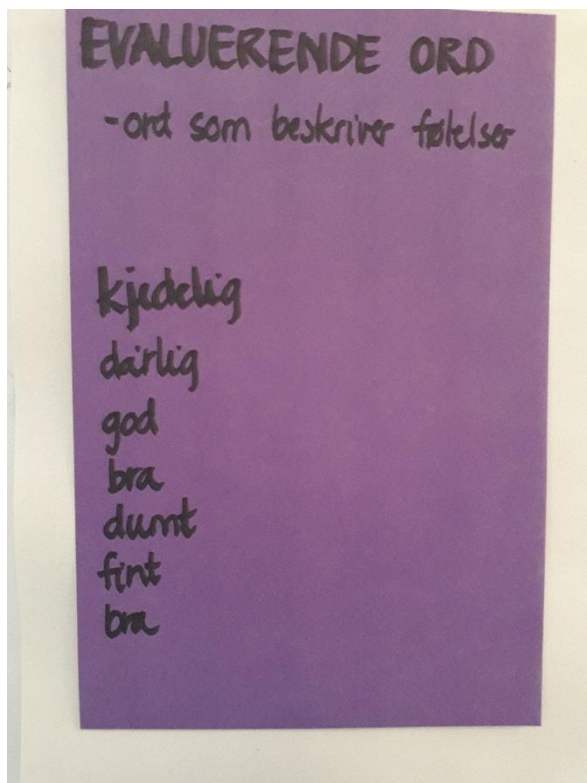 EVALUERENDE ORD
-ord som beskriver følelser
kjedelig
dårlig
god
bra
dumt
fint
bra